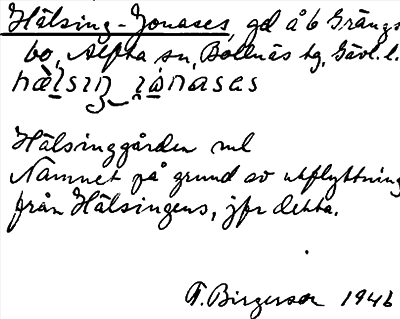 Hälsing-Jonases, gd å b Gräng
bo, Alfta sn, Bollnäs tg, Gävl. l.
Hälsinggården ml
Namnet på grund av utflyttning
från Hälsingens, jfr detta.
T. Birgersson 1946